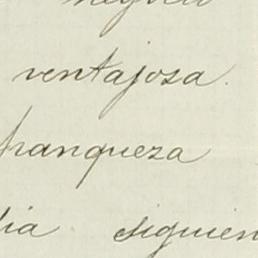 ventajosa.
franqueza
dia siguien